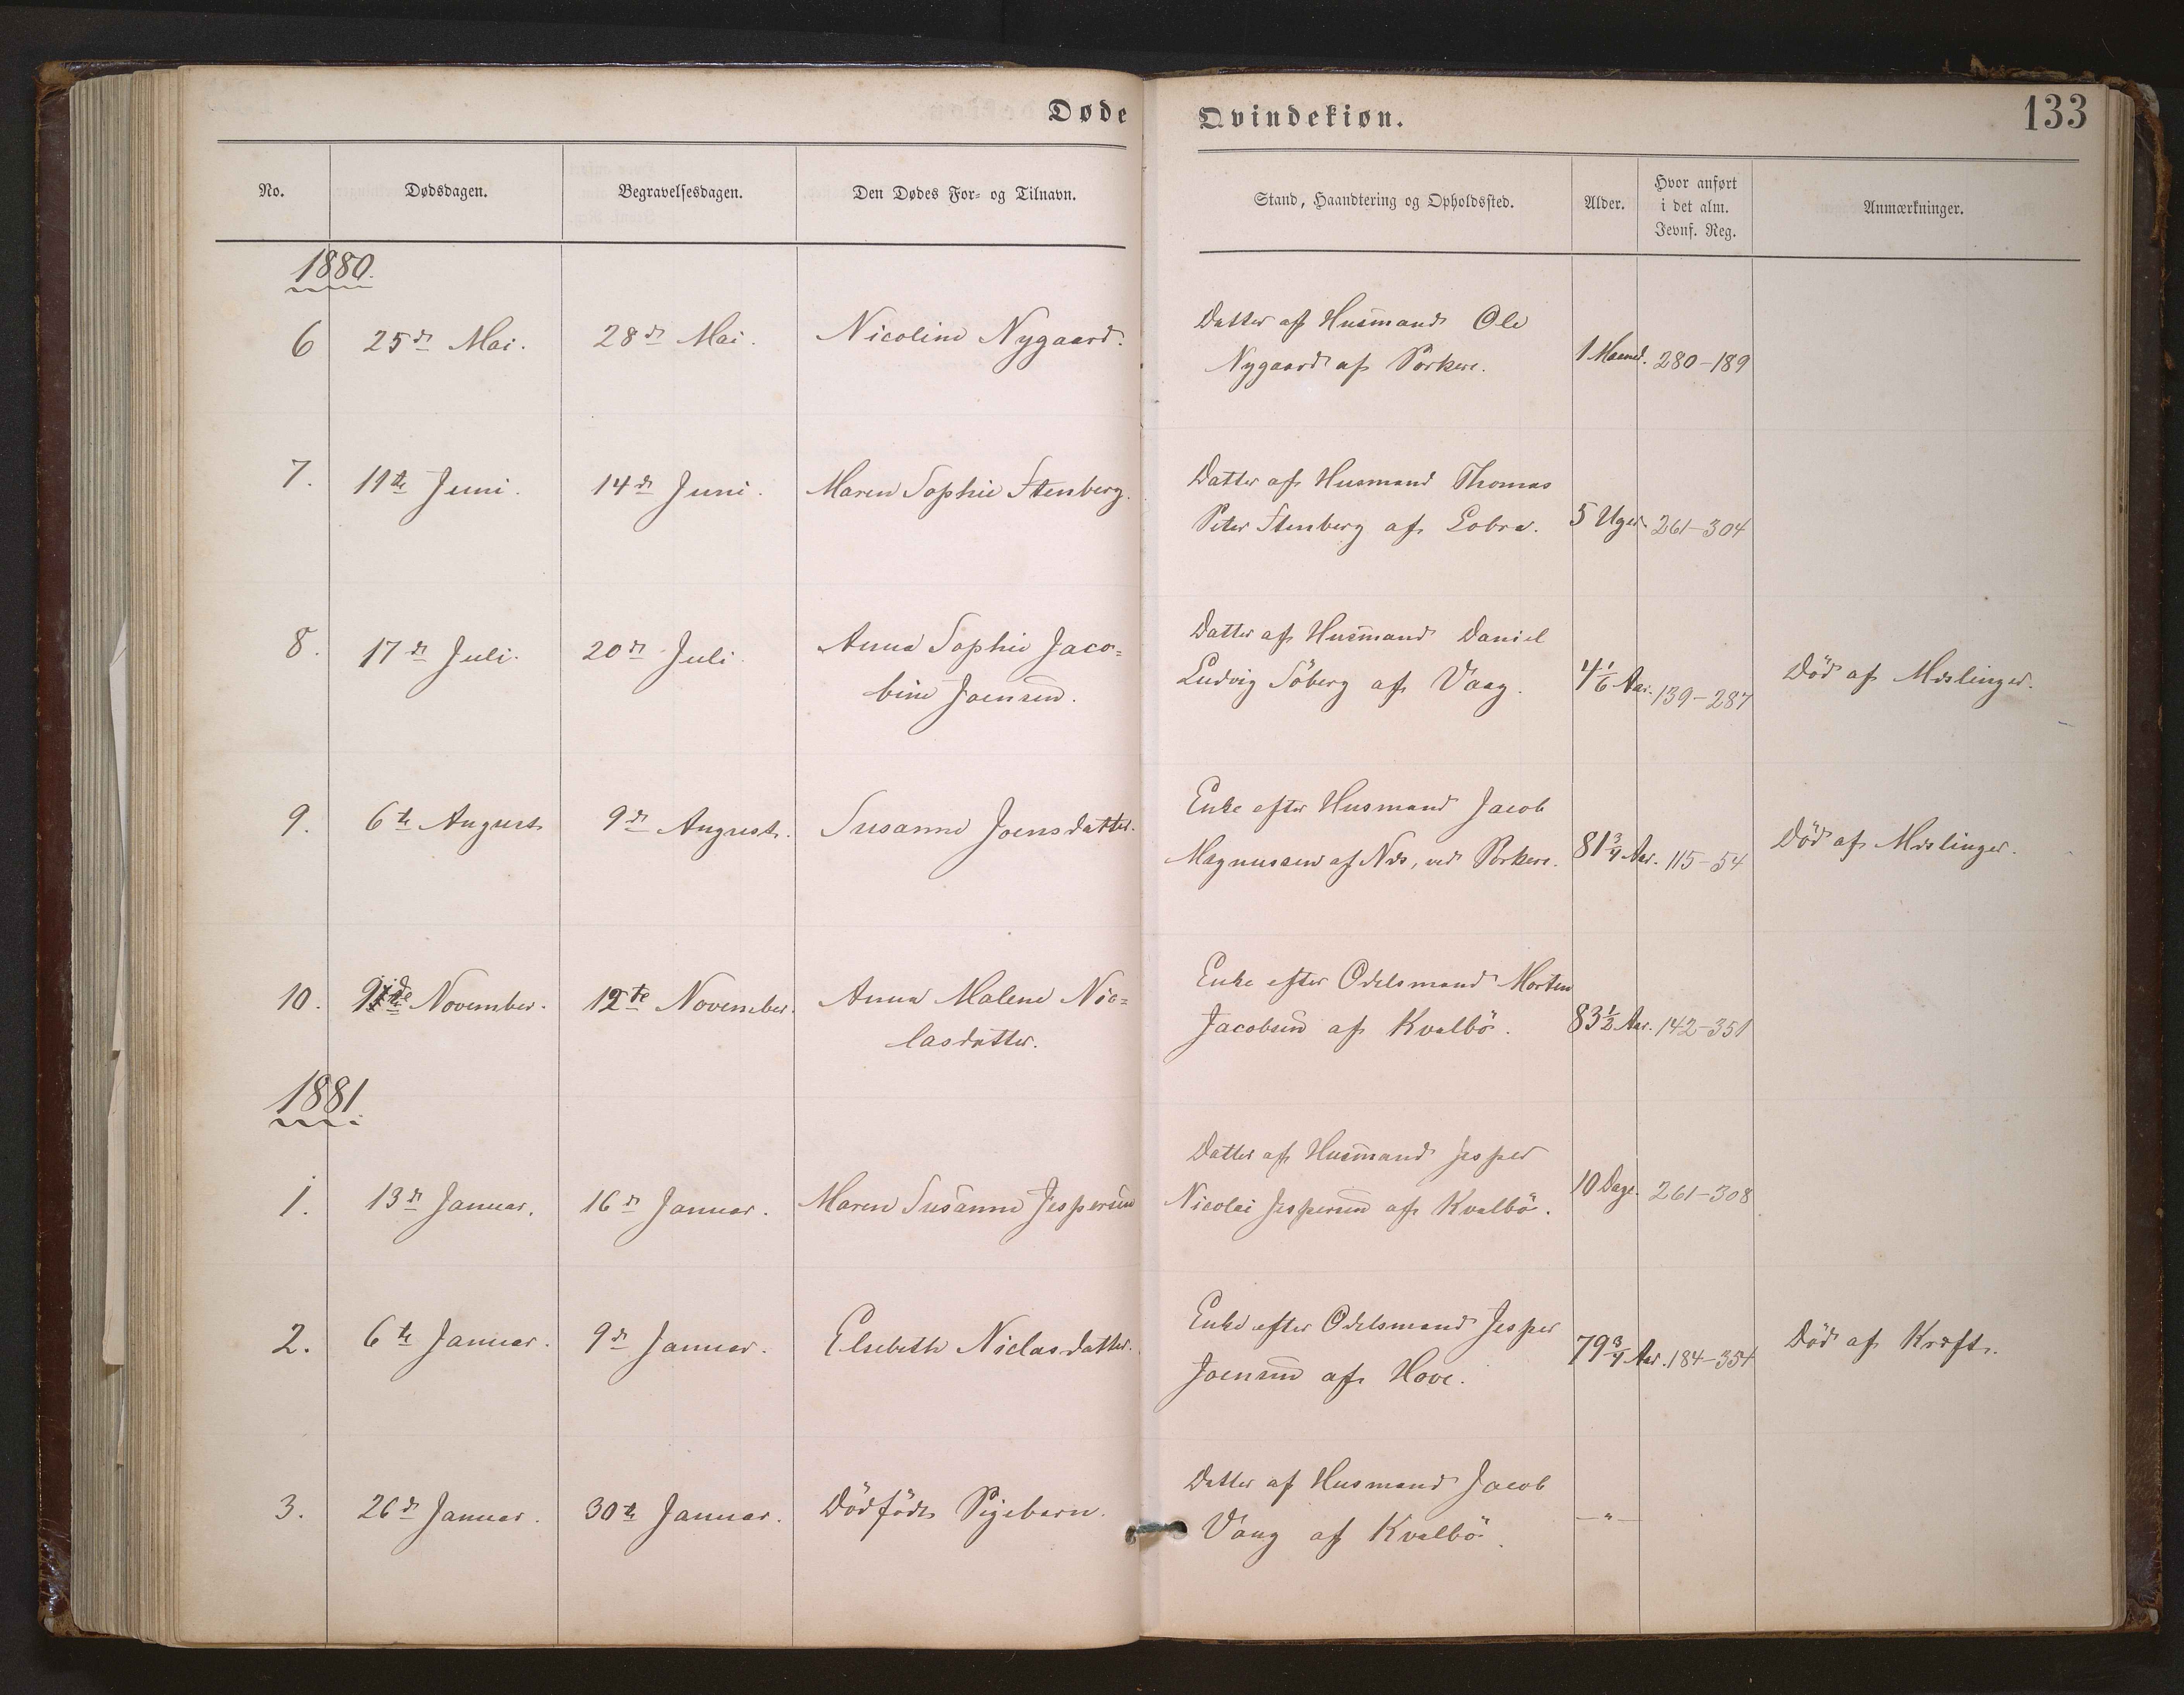 Døde
Qvindekiøn.
133
No.
Dødsdagen.
Begravelsesdagen.
Den Dødes For- og Tilnavn.
Stand, Haandtering og Opholdssted.
Alder.
Hvor anført
i det alm.
Jevnf. Reg.
Anmærkninger.
1880.
6
25de Mai.
28de Mai.
Nicoline Nygaard.
Datter af Husmand Ole
Nygaard af Porkere.
1 Maaned.
280-189
7.
11te Juni.
14de Juni.
Maren Sophie Stenberg.
Datter af Husmand Thomas
Peter Stenberg af Lobra.
5 Uger.
261-304
8.
17de Juli.
20de Juli.
Anna Sophie Jaco=
bine Joensen.
Datter af Husmand Daniel
Ludvig Söberg af Vaag.
4 1/6 Aar.
139-287
Död af Mæslinger.
9.
6te August
9de August.
Susanne Joensdatter.
Enke efter Husmand Jacob
Magnussen af Næs, ved Porkere.
81 3/4 Aar.
115-54
Död af Mæslinger.
10.
9de November.
12te November.
Anna Malene Nic=
lasdatter.
Enke efter Odelsmand Morten
Jacobsen af Kvalbö.
83 1/2 Aar.
142-351
1881.
1.
13de Januar.
16de Januar.
Maren Susanne Jespersen
Datter af Husmand Jesper
Nicolai Jespersen af Kvalbö.
10 Dage.
261-308
2.
6te Januar.
9de Januar.
Elsebeth Niclasdatter.
Enke efter Odelsmand Jesper
Joensen af Hove.
79 3/4 Aar.
184-354
Död af Kræft.
3.
26de Januar.
30te Januar.
Dödfödt Pigebarn.
Datter af Husmand Jacob
Vang af Kvalbö.
-"-